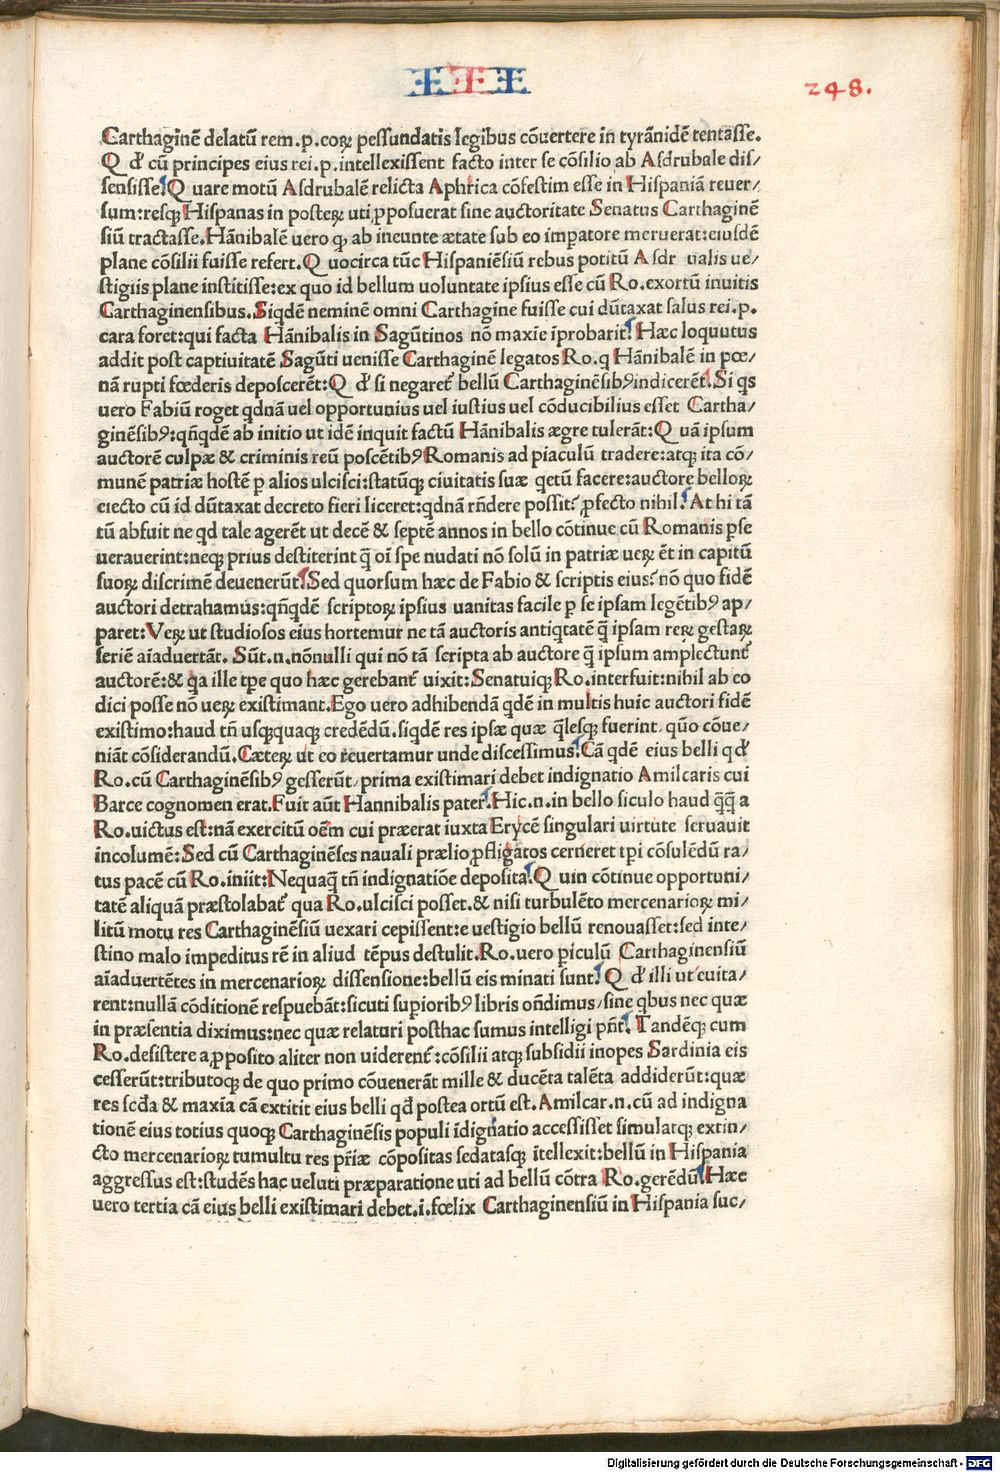 III
248.
Carthaginē delatū rem.p.eoꝝ pessundatis legibus cōuertere in tyrānidē tentasse.
Q đ cū principes eius rei.p.intellexissent facto inter se cōsilio ab Asdrubale dis/
sensisse.Q uare motū Asdrubalē relicta Aphrica cōfestim esse in Hispaniā reuer/
sum:resqꝫ Hispanas in posteꝝ uti ꝓposuerat sine auctoritate Senatus Carthaginē
siū tractasse.Hānibalē uero qꝫ ab ineunte ætate sub eo impatore meruerat:eiusdē
plane cōsilii fuisse refert.Q uocirca tūc Hispaniēsiū rebus potitū Asdr ualis ue/
stigiis plane institisse:ex quo id bellum uoluntate ipsius esse cū Ro.exortū inuitis
Carthaginensibus.Siqdē neminē omni Carthagine fuisse cui dūtaxat salus rei.p.
cara foret:qui facta Hānibalis in Sagūtinos nō maxīe īprobarit.Hæc loquutus
addit post captiuitatē Sagūti uenisse Carthaginē legatos Ro.q Hānibalē in pœ/
nā rupti fœderis deposcerēt:Q đ si negaret᷑ bellū Carthaginēsibꝰ indicerēt.Si qs
uero Fabiū roget qdnā uel opportunius uel iustius uel cōducibilius esset Cartha/
ginēsibꝰ:qn̄qdē ab initio ut idē inquit factū Hānibalis ægre tulerāt:Q uā ipsum
auctorē culpæ & criminis reū poscētibꝰ Romanis ad piaculū tradere:atqꝫ ita cō/
munē patriæ hostē ꝑ alios ulcisci:statūqꝫ ciuitatis suæ qetū facere:auctore belloꝝ
eiecto cū id dūtaxat decreto fieri liceret:qdnā rn̄dere possit: ꝓfecto nihil.At hi tā
tū abfuit ne qd tale agerēt ut decē & septē annos in bello cōtinue cū Romanis ꝑse
uerauerint:neqꝫ prius destiterint q̄ oī spe nudati nō solū in patriæ ueꝝ ēt in capitū
suoꝝ discrimē deuenerūt.Sed quorsum hæc de Fabio & scriptis eius: nō quo fidē
auctori detrahamus:qn̄qdē scriptoꝝ ipsius uanitas facile ꝑ se ipsam legētibꝰ ap/
paret:Veꝝ ut studiosos eius hortemur ne tā auctoris antiqtatē q̄ ipsam reꝝ gestaꝝ
seriē aīaduertāt. Sūt.n.nōnulli qui nō tā scripta ab auctore q̄ ipsum amplectunt᷑
auctorē:& qa ille tꝑe quo hæc gerebant᷑ uixit:Senatuiqꝫ Ro.interfuit:nihil ab eo
dici posse nō ueꝝ existimant.Ego uero adhibendā qdē in multis huic auctori fidē
existimo:haud tn̄ usqꝫquaqꝫ credēdū.siqdē res ipsæ quæ q̄lesqꝫ fuerint quō cōue/
niāt cōsiderandū.Cæteꝝ ut eo reuertamur unde discessimus.Cā qdē eius belli q đ
Ro.cū Carthaginēsibꝰ gesserūt/prima existimari debet indignatio Amilcaris cui
Barce cognomen erat.Fuit aūt Hannibalis pater.Hic.n.in bello siculo haud q̄q̄ a
Ro.uictus est:nā exercitū oēm cui præerat iuxta Erycē singulari uirtute seruauit
incolumē:Sed cū Carthaginēses nauali prælio ꝓfligatos cerneret tpi cōsulēdū ra/
tus pacē cū Ro.iniit:Nequaq̄ tn̄ indignatiōe deposita.Q uin cōtinue opportuni/
tatē aliquā præstolabat᷑ qua Ro.ulcisci posset.& nisi turbulēto mercenarioꝝ mi/
litū motu res Carthaginēsiū uexari cepissent:e uestigio bellū renouasset:sed inte/
stino malo impeditus rē in aliud tēpus destulit.Ro.uero ꝑiculū Carthaginensiū
aīaduertētes in mercenarioꝝ dissensione:bellū eis minati sunt.Q đ illi ut euita/
rent:nullā cōditionē respuebāt:sicuti supioribꝰ libris on̄dimus/sine qbus nec quæ
in præsentia diximus:nec quæ relaturi posthac sumus intelligi pn̄t.Tandēqꝫ cum
Ro.desistere a ꝓposito aliter non uiderent᷑:cōsilii atqꝫ subsidii inopes Sardinia eis
cesserūt:tributoqꝫ de quo primo cōuenerāt mille & ducēta talēta addiderūt:quæ
res scđa & maxīa cā extitit eius belli qđ postea ortū est.Amilcar.n.cū ad indigna
tionē eius totius quoqꝫ Carthaginēsis populi īdignatio accessisset simulatqꝫ extin/
cto mercenarioꝝ tumultu res pr̄iæ cōpositas sedatasqꝫ ītellexit:bellū in Hispania
aggressus est:studēs hac ueluti præparatione uti ad bellū cōtra Ro.gerēdū.Hæc
uero tertia cā eius belli existimari debet.i.fœlix Carthaginensiū in Hispania suc/
Digitalisierung gefördert durch die Deutsche Forschungsgemeinschaft - DFG